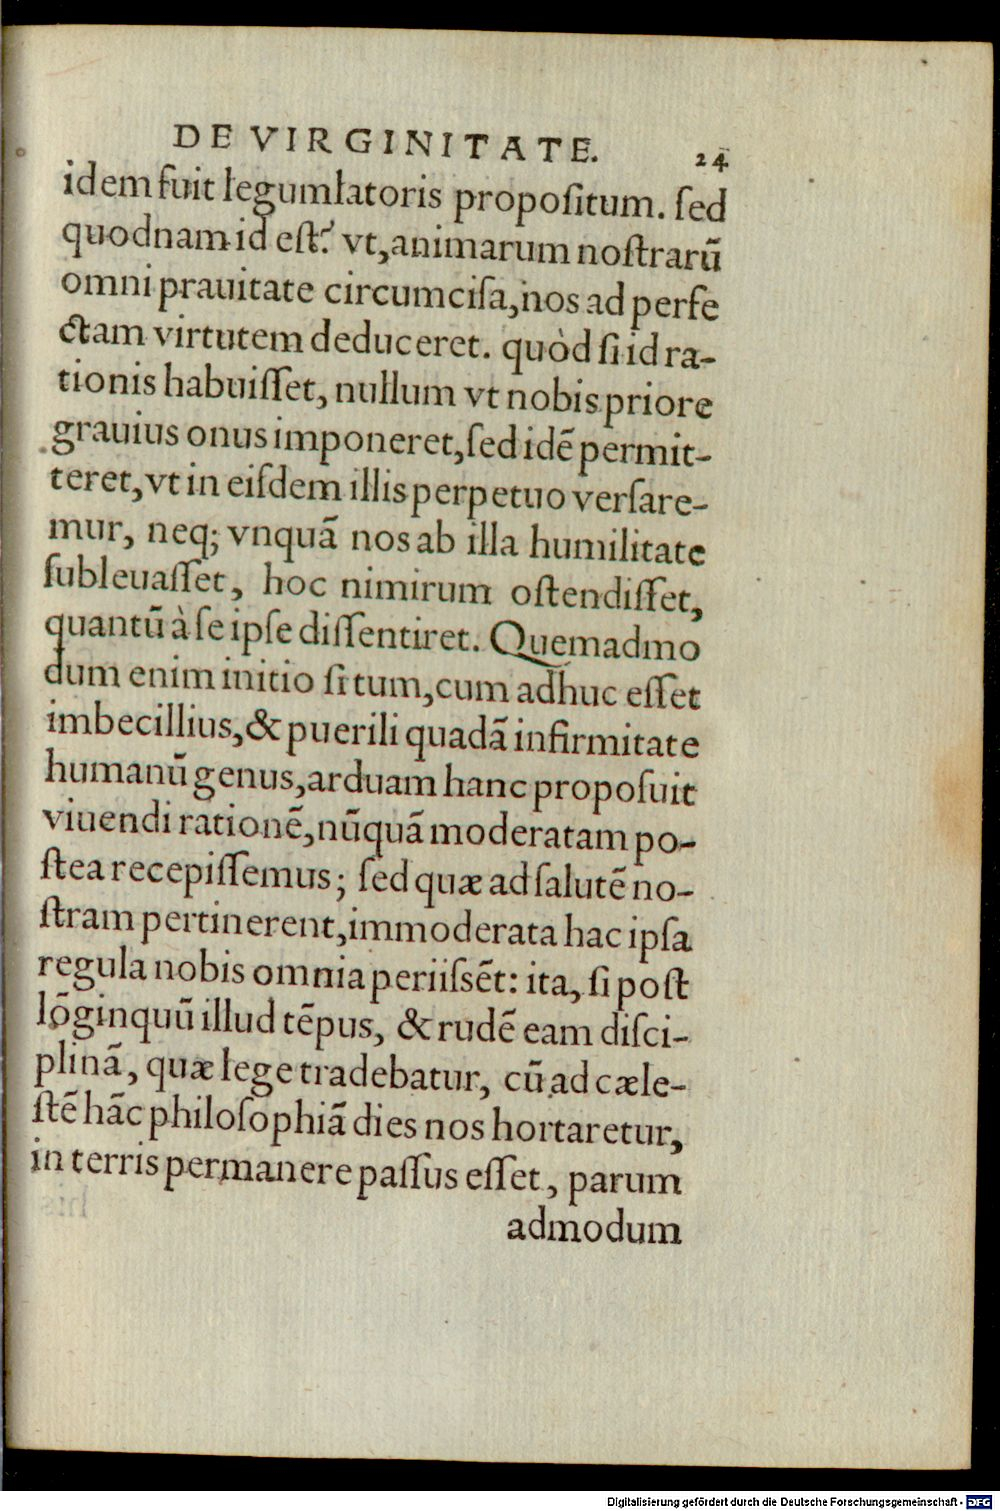 DE VIRGINITATE. 24
idem fuit legumlatoris propoſitum. ſed
quodnam id eſt? vt, animarum noſtrarũ
omni prauitate circumciſa, nos ad perfe
ctam virtutem deduceret. quòd ſi id ra-
tionis habuiſſet, nullum vt nobis priore
grauius onus imponeret, ſed idẽ permit-
teret, vt in eiſdem illis perpetuo verſare-
mur, neq; vnquã nos ab illa humilitate
ſubleuaſſet, hoc nimirum oſtendiſſet,
quantũ à ſe ipſe diſſentiret. Quemadmo
dum enim initio ſi tum, cum adhuc eſſet
imbecillius, & puerili quadã infirmitate
humanũ genus, arduam hanc propoſuit
viuendi rationẽ, nũquã moderatam po-
ſtea recepiſſemus; ſed quæ ad ſalutẽ no-
ſtram pertinerent, immoderata hac ipſa
regula nobis omnia periiſsẽt: ita, ſi poſt
lõginquũ illud tẽpus, & rudẽ eam diſci-
plinã, quæ lege tradebatur, cũ ad cæle-
ſtẽ hãc philoſophiã dies nos hortaretur,
in terris permanere paſſus eſſet, parum
admodum
Digitalisierung gefördert durch die Deutsche Forschungsgemeinschaft - DFG